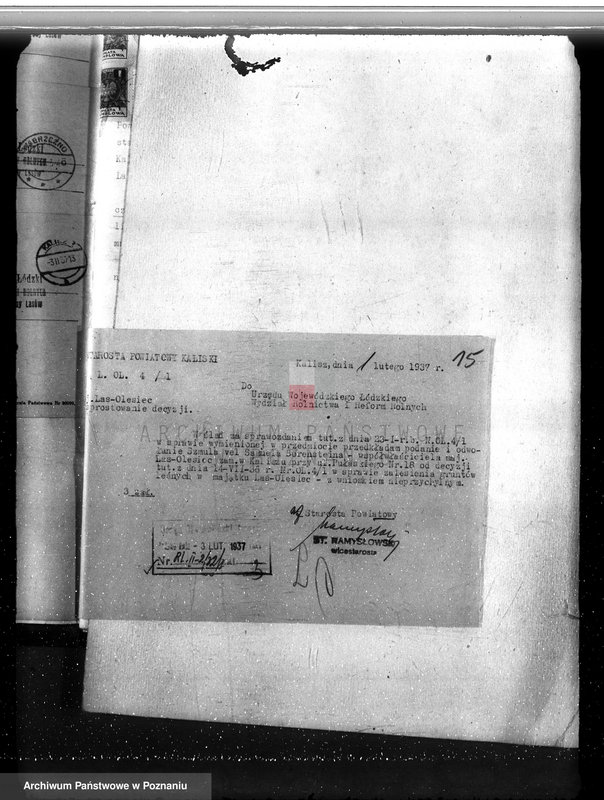 STAROSTA POWIATOWY KALISKI
L. OL. 4 /1
Las-Olesiec
sprostowanie decyzji.
Kalisz, dnia 1 lutego 1937 r.
15
Do
Urzędu Wojewódzkiego Łódzkiego
Wydział Rolnictwa i Reform Rolnych
W ślad za sprawozdaniem tut. z dnia 23-I-r.b. N.OL.4/1
w sprawie wymienionej w przedmiocie przedkładam podanie i odwo-
łanie Szmula vel Samuela Borensteina - współwłaściciela maj.
Las-Olesiec zam. w Kaliszu przy ul. Pułaskiego Nr.18 od decyzji
tut. z dnia 14-VII-36 r. Nr.OL.4/1 w sprawie zalesienia gruntów
leśnych w majątku Las-Olesiec - z wnioskiem nieprzychylnym.
3 zał.
Starosta Powiatowy
ST. NAMYSŁOWSKI
wicestarosta
- 3 LUT. 1937
Nr.
zał.
WĄBRZEŹNO
ARCHIWUM PAŃSTWOWE
Archiwum Państwowe w Poznaniu